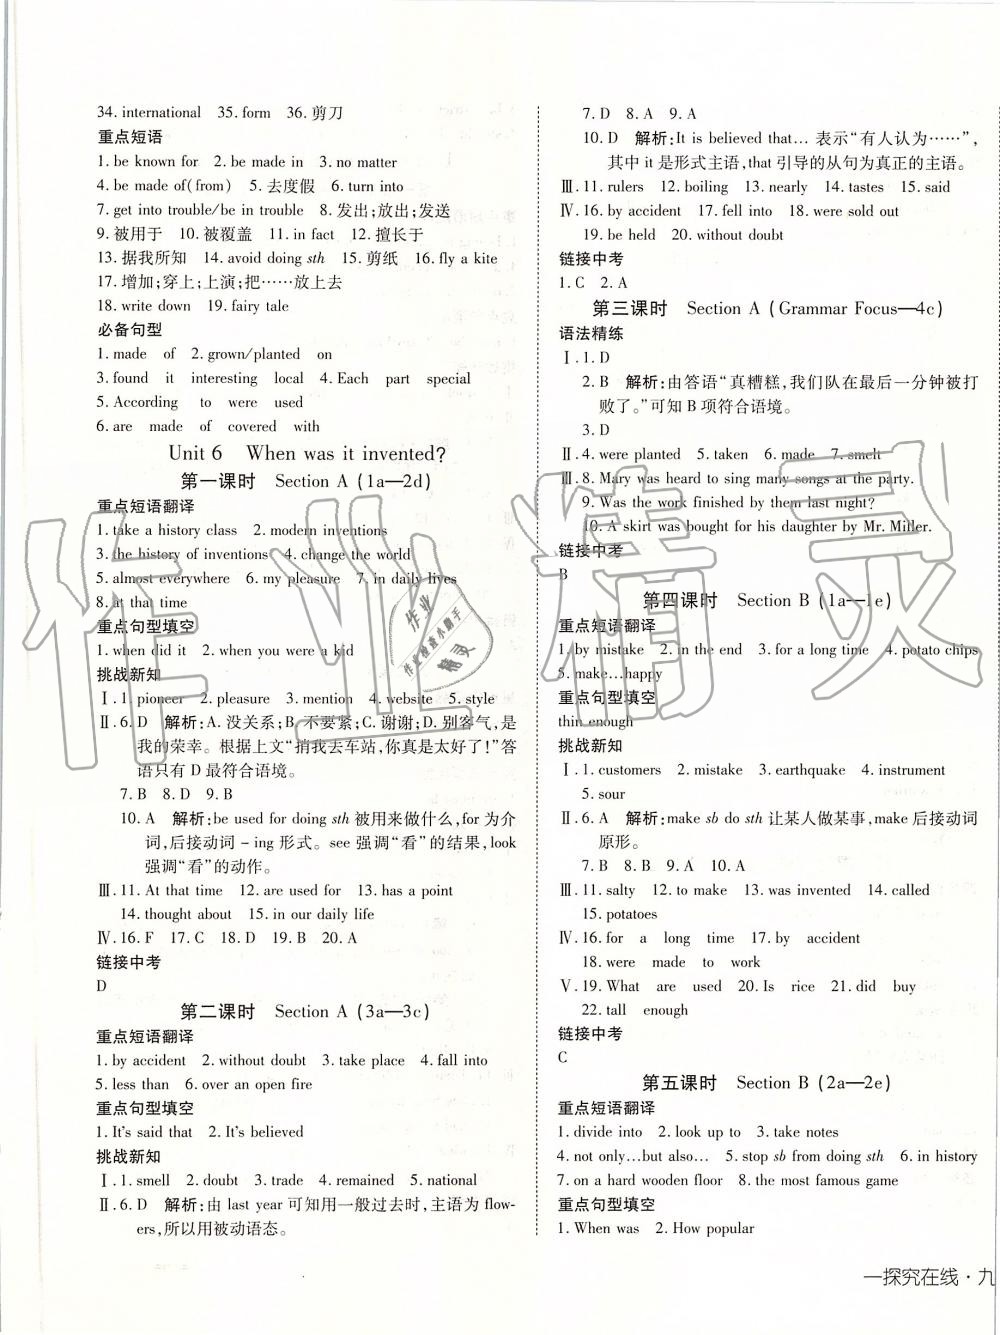 34. international　35. form　36. 剪刀
重点短语
1. be known for　2. be made in　3. no matter
4. be made of(from)　5. 去度假　6. turn into
7. get into trouble/be in trouble　8. 发出;放出;发送
9. 被用于　10. 被覆盖　11. in fact　12. 擅长于
13. 据我所知　14. avoid doing sth　15. 剪纸　16. fly a kite
17. 增加;穿上;上演;把……放上去
18. write down　19. fairy tale
必备句型
1. made　of　2. grown/planted　on
3. found　it　interesting　local　4. Each　part　special
5. According　to　were　used
6. are　made　of　covered　with
Unit 6　When was it invented?
第一课时　Section A (1a—2d)
重点短语翻译
1. take a history class　2. modern inventions
3. the history of inventions　4. change the world
5. almost everywhere　6. my pleasure　7. in daily lives
8. at that time
重点句型填空
1. when did it　2. when you were a kid
挑战新知
Ⅰ. 1. pioneer　2. pleasure　3. mention　4. website　5. style
Ⅱ. 6. D　解析:A. 没关系;B. 不要紧;C. 谢谢;D. 别客气,是
我的荣幸。根据上文“捎我去车站,你真是太好了!”答
语只有 D 最符合语境。
7. B　8. D　9. B
10. A　解析:be used for doing sth 被用来做什么,for 为介
词,后接动词 - ing 形式。see 强调“看”的结果,look
强调“看”的动作。
Ⅲ. 11. At that time　12. are used for　13. has a point
14. thought about　15. in our daily life
Ⅳ. 16. F　17. C　18. D　19. B　20. A
链接中考
D
第二课时　Section A (3a—3c)
重点短语翻译
1. by accident　2. without doubt　3. take place　4. fall into
5. less than　6. over an open fire
重点句型填空
1. It's said that　2. It's believed
挑战新知
Ⅰ. 1. smell　2. doubt　3. trade　4. remained　5. national
Ⅱ. 6. D　解析:由 last year 可知用一般过去时,主语为 flow-
ers,所以用被动语态。
7. D　8. A　9. A
10. D　解析:It is believed that… 表示“有人认为……”,
其中 it 是形式主语,that 引导的从句为真正的主语。
Ⅲ. 11. rulers　12. boiling　13. nearly　14. tastes　15. said
Ⅳ. 16. by accident　17. fell into　18. were sold out
19. be held　20. without doubt
链接中考
1. C　2. A
第三课时　Section A (Grammar Focus—4c)
语法精练
Ⅰ. 1. D
2. B　解析:由答语“真糟糕,我们队在最后一分钟被打
败了。”可知 B 项符合语境。
3. D
Ⅱ. 4. were planted　5. taken　6. made　7. smelt
Ⅲ. 8. Mary was heard to sing many songs at the party.
9. Was the work finished by them last night?
10. A skirt was bought for his daughter by Mr. Miller.
链接中考
B
第四课时　Section B (1a—1e)
重点短语翻译
1. by mistake　2. in the end　3. for a long time　4. potato chips
5. make…happy
重点句型填空
thin enough
挑战新知
Ⅰ. 1. customers　2. mistake　3. earthquake　4. instrument
5. sour
Ⅱ. 6. A　解析:make sb do sth 让某人做某事,make 后接动词
原形。
7. B　8. B　9. A　10. A
Ⅲ. 11. salty　12. to make　13. was invented　14. called
15. potatoes
Ⅳ. 16. for　a　long　time　17. by　accident
18. were　made　to　work
Ⅴ. 19. What　are　used　20. Is　rice　21. did　buy
22. tall　enough
链接中考
C
第五课时　Section B (2a—2e)
重点短语翻译
1. divide into　2. look up to　3. take notes
4. not only…but also…　5. stop sb from doing sth　6. in history
7. on a hard wooden floor　8. the most famous game
重点句型填空
1. When was　2. How popular
一探究在线·九
作业精灵
作业
作业检查小助手
精灵